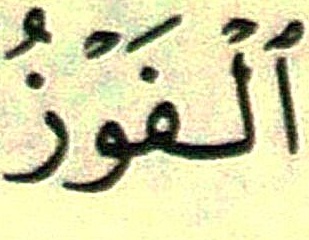 ٱلْفَوْزُ